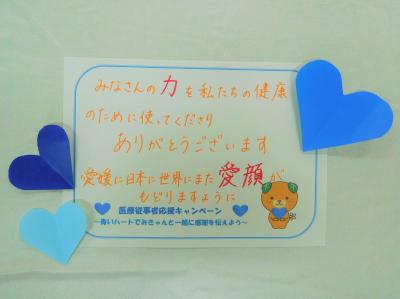 みなさんの力を私たちの健康
のために使ってくださり
ありがとうございます
愛媛に日本に世界にまた愛顔が
もどりますように
医療従事者応援キャンペーン
～青いハートでみきゃんと一緒に感謝を伝えよう～